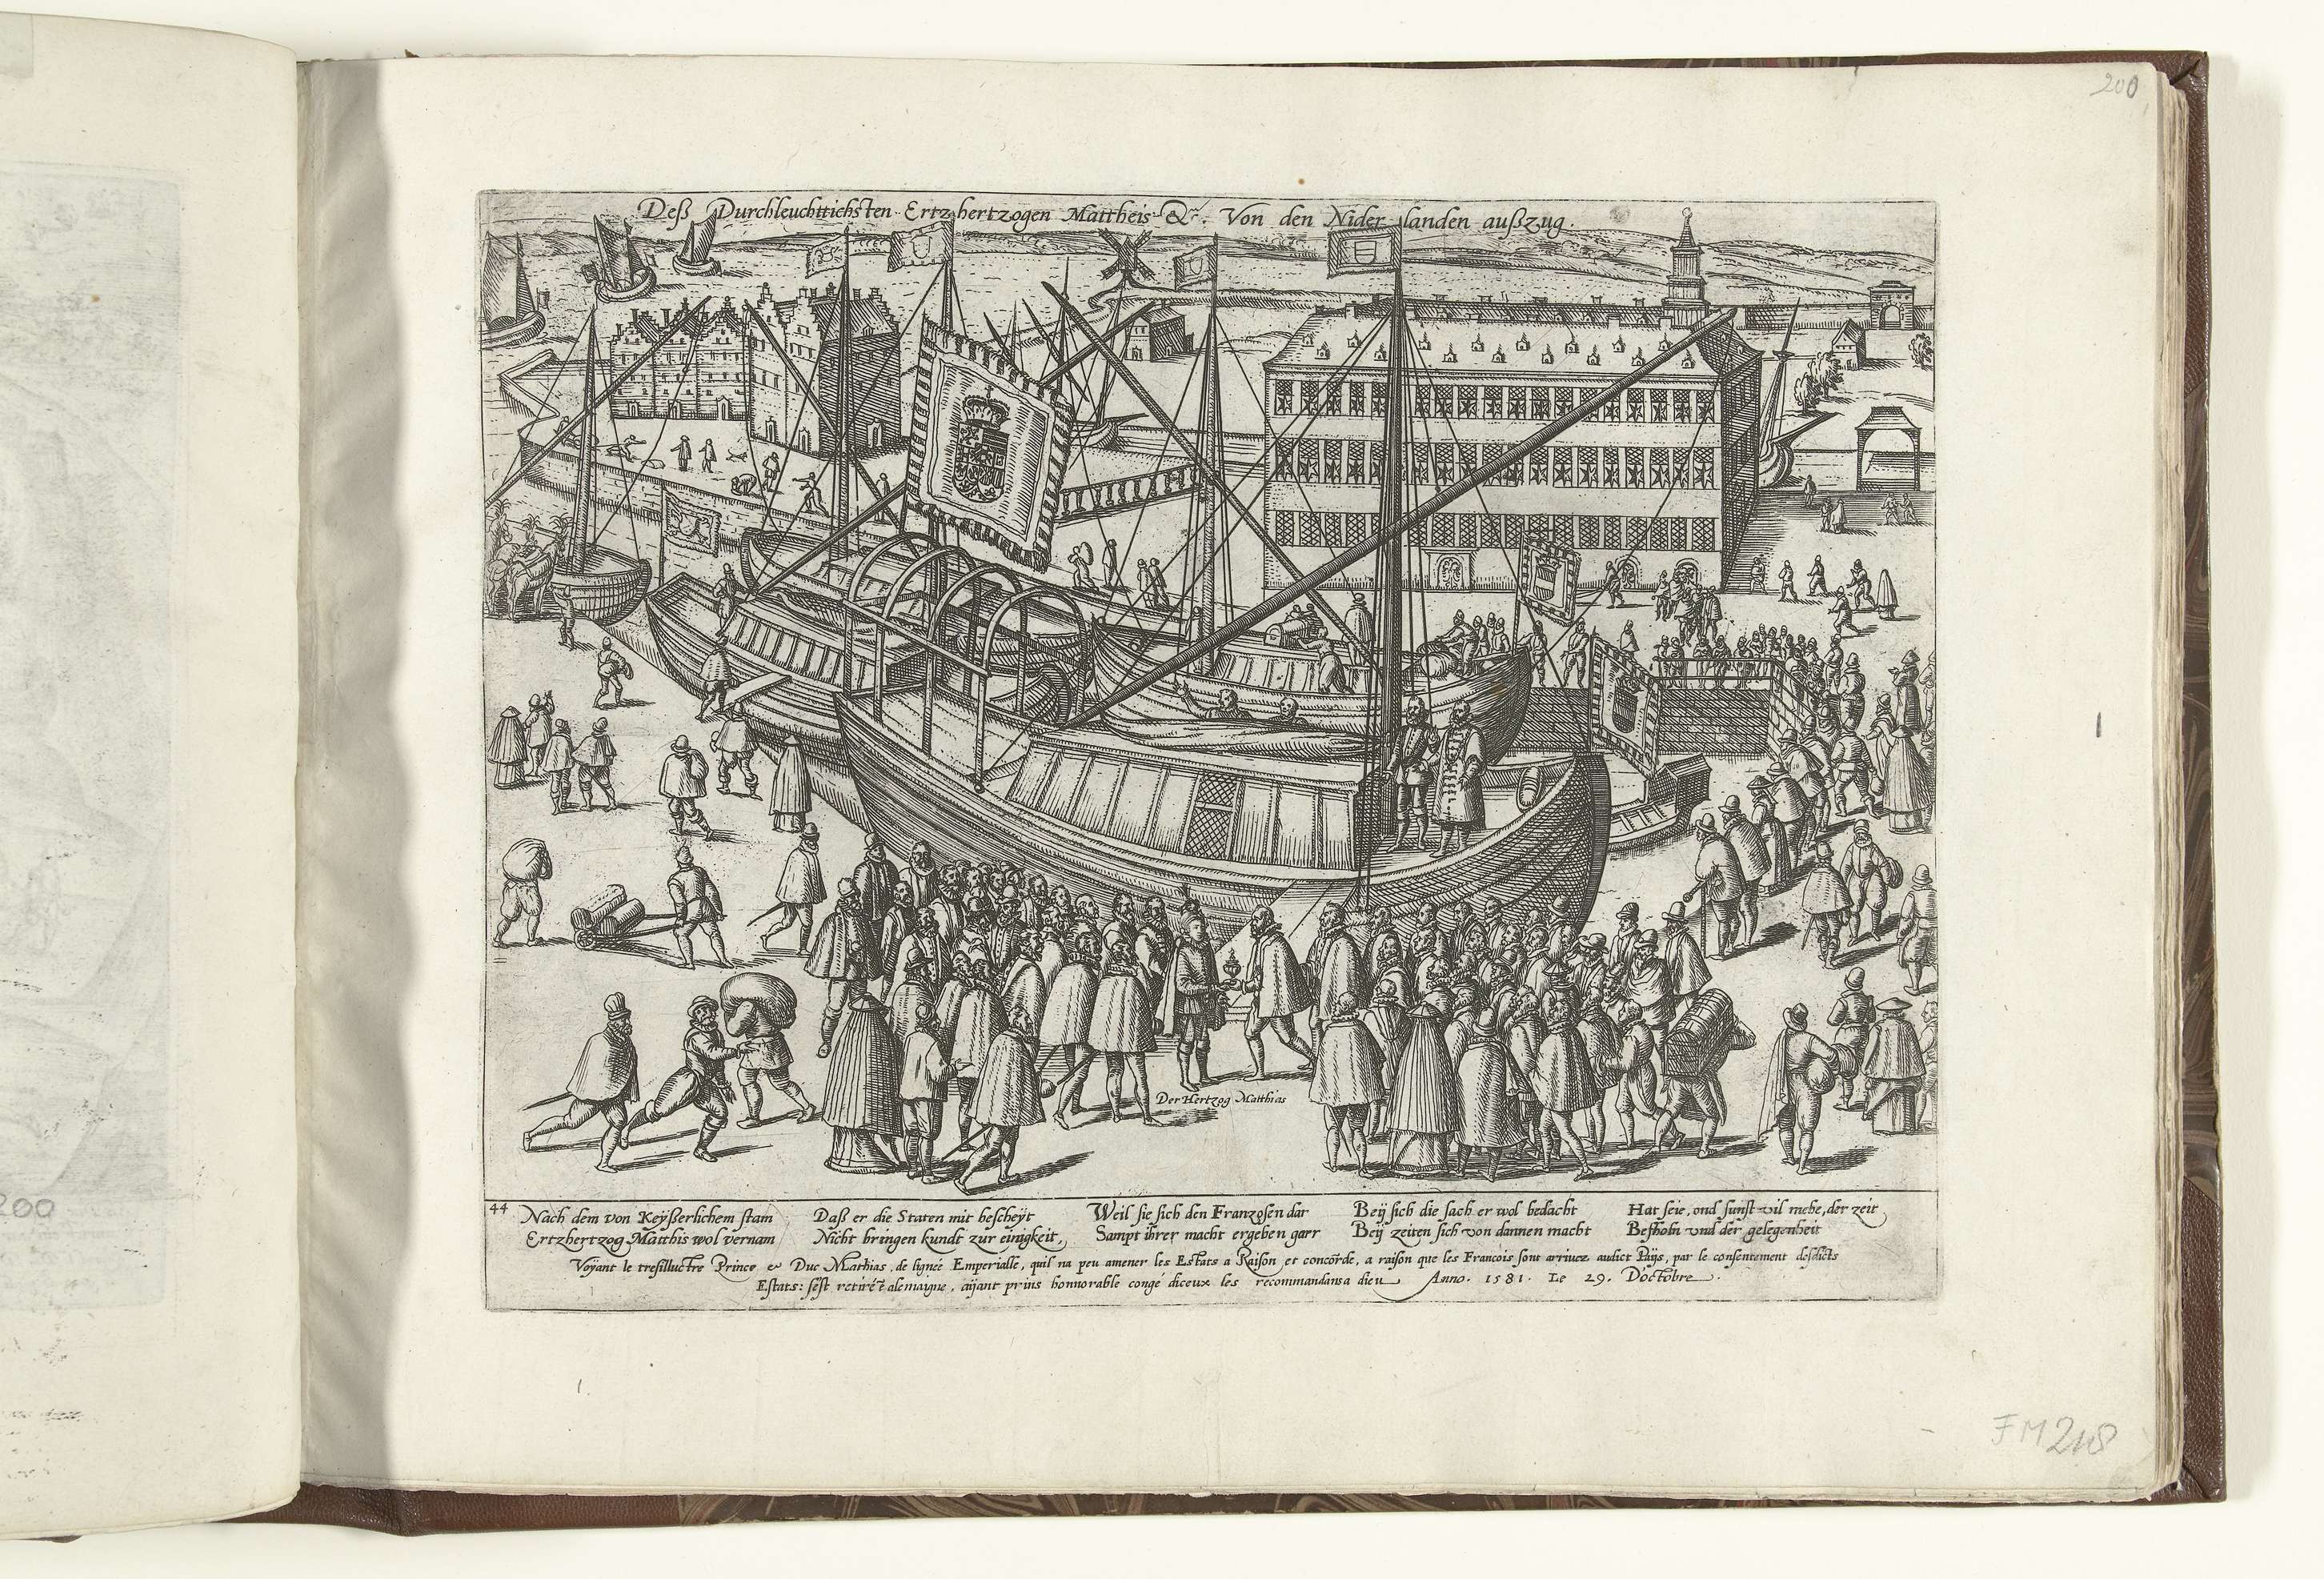 200
Deß Durchleuchttichsten Ertzhertzogen Mattheis &. Von den Nider landen außzug.
Der Hertzog Matthias
44
Nach dem von Keÿßerlichem stam
Ertzhertzog Matthis wol vernam
Daß er die Staten mit bescheÿt
Nicht bringen kundt zur einigkeit,
Weil sie sich den Franzosen dar
Sampt ihrer macht ergeben garr
Beÿ sich die sach er wol bedacht
Beÿ zeiten sich von dannen macht
Hat seie, ond sunst vil mehe, der zeit
Befholn vnd der gelegenheit
Voÿant le tresilluctre Prince e Duc Mathias, de lignee Emperialle, quil na peu amener les Estats a Raison et concorde, a raison que les Francois sont arriuez audict Païjs, par le consentement desdicts
Estats: sést retiré alemaigne, aijant prins honnorable congé diceux les recommandansa dieu Anno. 1581. Le 29. D'octobre.
FM 218
200